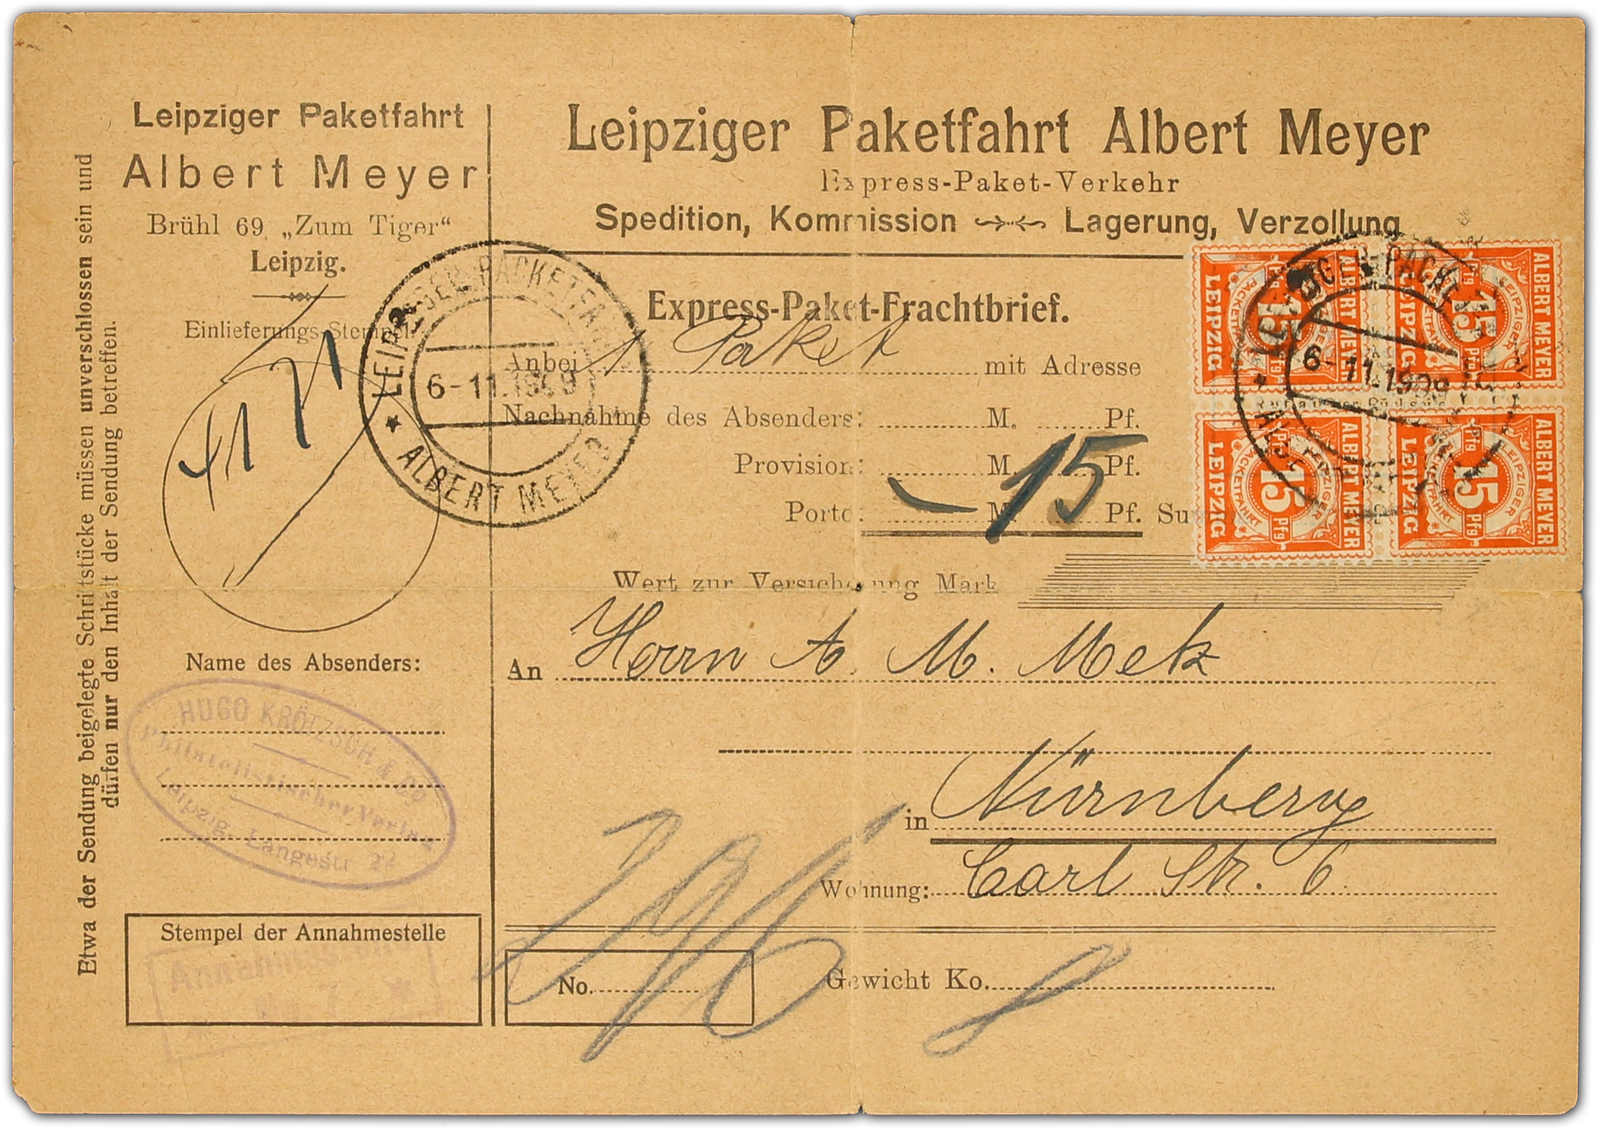 Etwa der Sendung beigelegte Schriftstücke müssen unverschlossen sein und
dürfen nur den Inhalt der Sendung betreffen.
Leipziger Paketfahrt
Albert Meyer
Brühl 69 „Zum Tiger“
Leipzig.
Einlieferungs-Stempel
LEIPZIGER PACKETFAHRT
6-11.1909
* ALBERT MEYER
Name des Absenders:
HUGO KRÖTZSCH & Co
Philatelistischer Verlag
Leipzig, Langestr
Stempel der Annahmestelle
Leipziger Paketfahrt Albert Meyer
Express-Paket-Verkehr
Spedition, Kommission Lagerung, Verzollung
Express-Paket-Frachtbrief.
Anbei 1 Paket mit Adresse
Nachnahme des Absenders: M. Pf.
Provision: M. Pf.
Porto: -15 M. Pf. Su
Wert zur Versicherung Mark
An Herrn A. M. Metz
in Nürnberg
Wohnung: Carl Str. 6
No. 296
Gewicht Ko. 8
ALBERT MEYER
LEIPZIGER PACKETFAHRT
15 Pfg
LEIPZIG
ALBERT MEYER
LEIPZIGER PACKETFAHRT
15 Pfg
LEIPZIG
ALBERT MEYER
LEIPZIGER PACKETFAHRT
15 Pfg
LEIPZIG
ALBERT MEYER
LEIPZIGER PACKETFAHRT
15 Pfg
LEIPZIG
6-11.1909